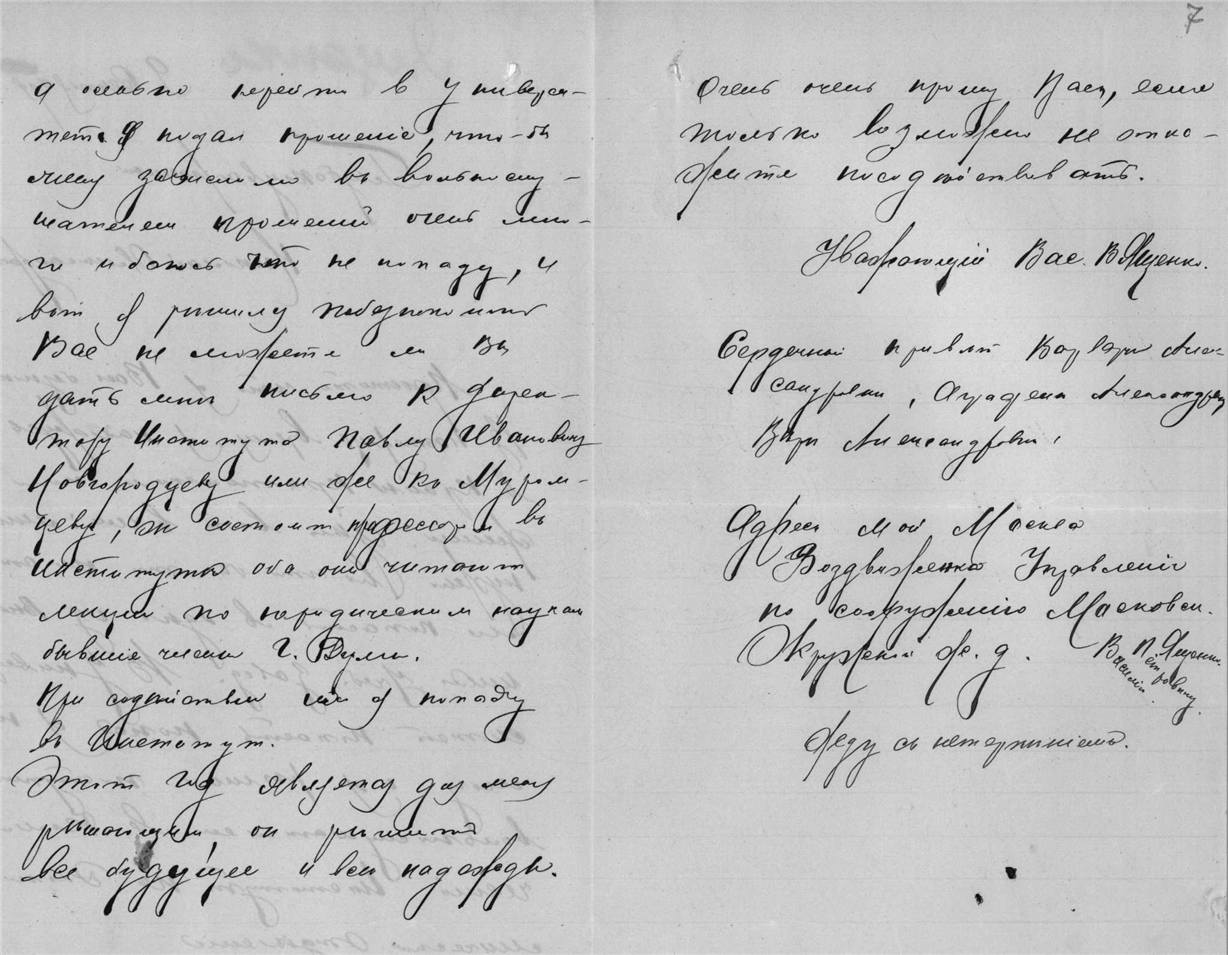 а осенью перейти в Универси-
тетъ. Я подал прошеніе, что-бы
меня зачислили въ вольнослу-
шатели прошеній очень мно-
го и боюсь что не попаду, и
вот я рѣшилъ побезпокоить
Вас не можете ли Вы
дать мнѣ письмо к Дирек-
тору Института Павлу Ивановичу
Новгородцеву или же ко Муром-
цеву, он состоит профессором въ
Институтѣ оба они читают
лекции по юридическим наукам
бывшіе члены Г. Думы.
При содѣйствіи их я попаду
въ Институт.
Этот год является для меня
рѣшающим, он рѣшитъ
все будущее и всѣ надежды.
7
Очень очень прошу Васъ, если
только возможно не отка-
жите посодѣйствовать.
Уважающій Вас. В Ященко.
Сердечный привѣт Варвары Алек-
сандровны, Аграфены Александровны
Вѣры Александровны.
Адрес мой Москва
Воздвиженка Управленіе
по сооруженію Московск.
Окружной ж. д.
В. П. Ященко
Василію Петровичу
Жду съ нетерпѣніемъ.